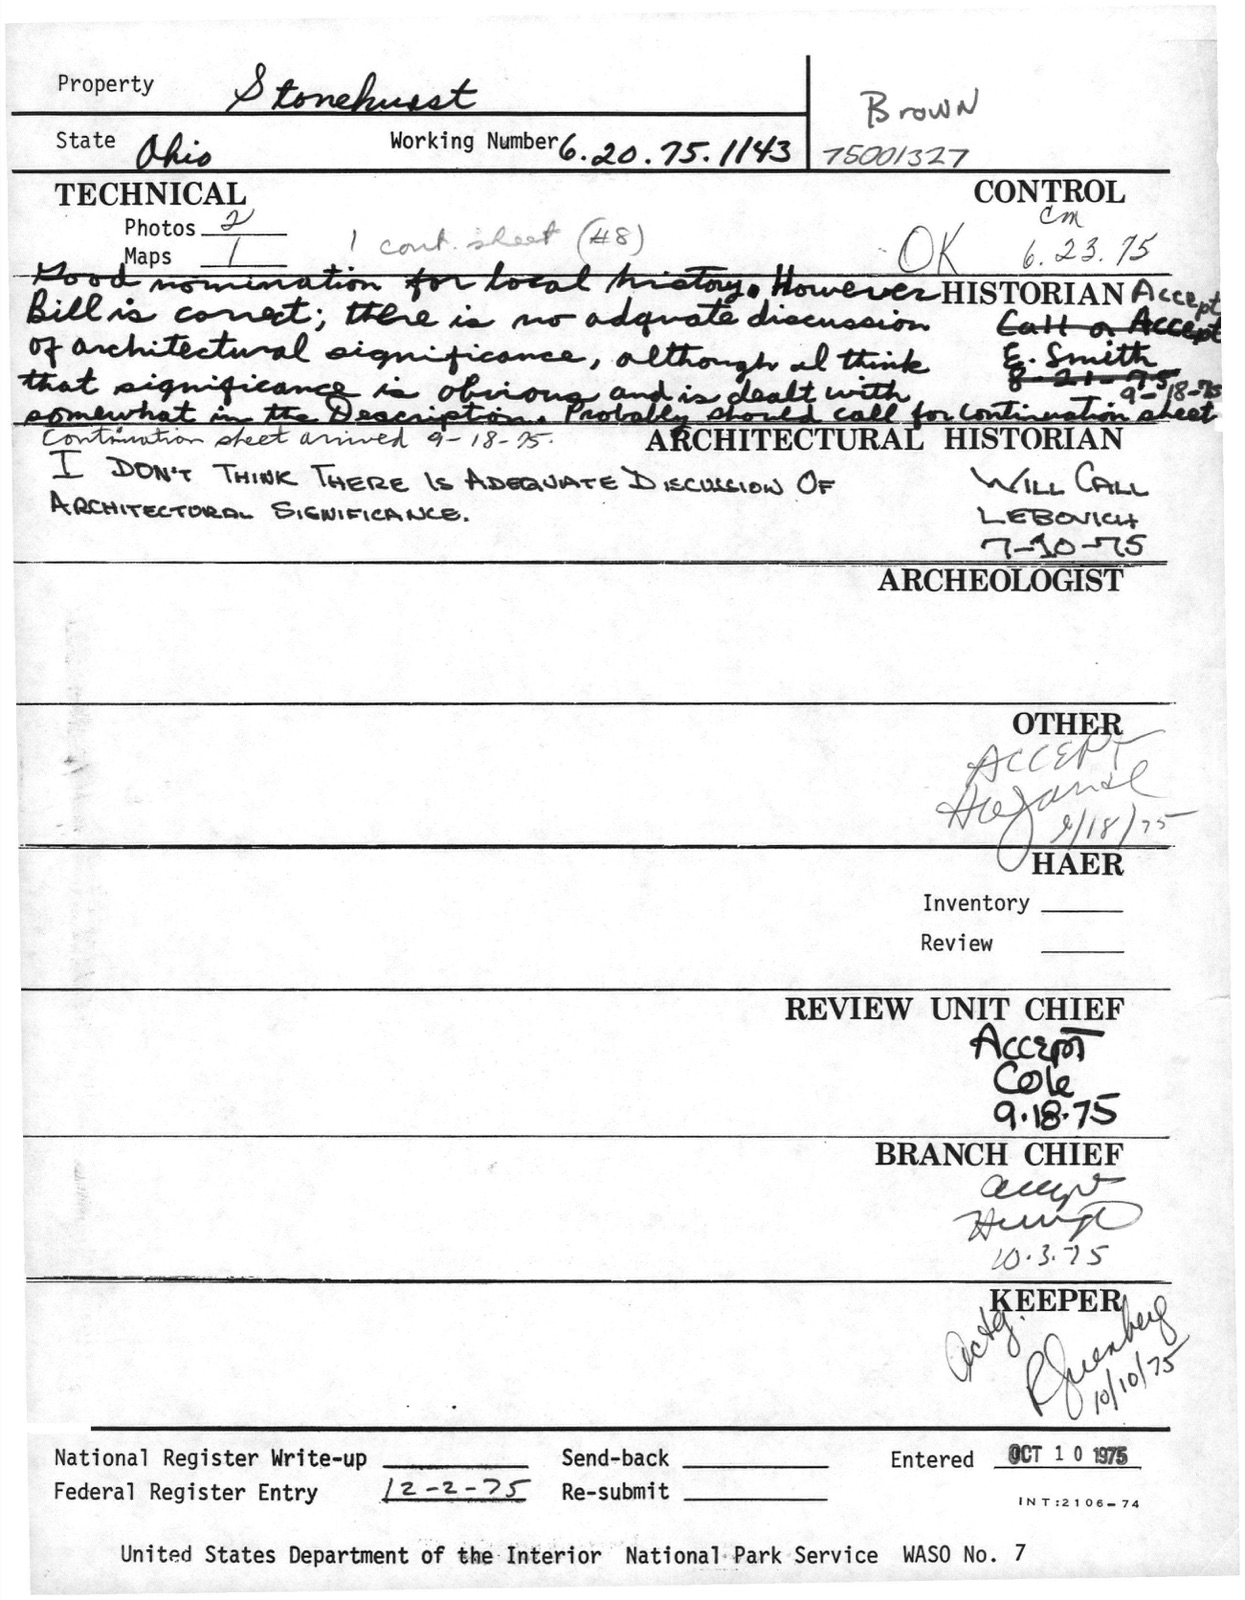 Property Stonehurst
Brown
State Ohio Working Number 6.20.75.1143 75001327
TECHNICAL CONTROL
Photos 2 cm
Maps 1 1 cont. sheet (#8) OK 6.23.75
Good nomination for local history. However HISTORIAN Accept
Bill is correct; there is no adquate discussion Call or Accept
of architectural significance, although I think E. Smith
that significance is obvious and is dealt with 8-21-75 9-18-75
somewhat in the Description. Probably should call for continuation sheet
Continuation sheet arrived 9-18-75. ARCHITECTURAL HISTORIAN
I DON'T THINK THERE IS ADEQUATE DISCUSSION OF WILL CALL
ARCHITECTURAL SIGNIFICANCE. LEBOVICH
7-30-75
ARCHEOLOGIST
OTHER
ACCEPT
9/18/75
HAER
Inventory
Review
REVIEW UNIT CHIEF
Accept
Cole
9.18.75
BRANCH CHIEF
accept
10.3.75
KEEPER
Actg.
10/10/75
National Register Write-up Send-back Entered OCT 10 1975
Federal Register Entry 12-2-75 Re-submit
INT:2106-74
United States Department of the Interior National Park Service WASO No. 7